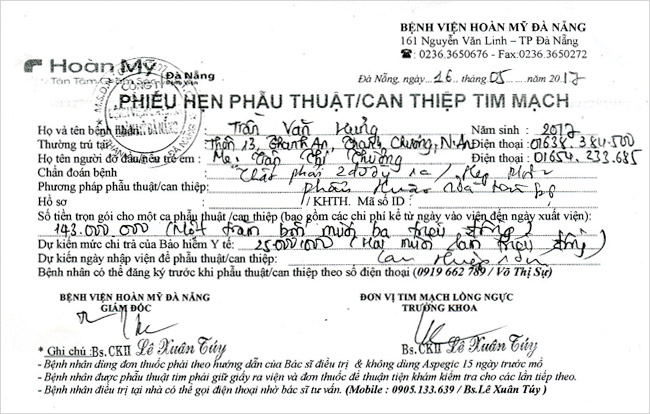 BỆNH VIỆN HOÀN MỸ ĐÀ NẴNG
161 Nguyễn Văn Linh – TP Đà Nẵng
☎: 0236.3650676 - Fax:0236.3650272
Hoàn Mỹ Đà Nẵng
Đà Nẵng, ngày 16 tháng 05 năm 2017
PHIẾU HẸN PHẪU THUẬT/CAN THIỆP TIM MẠCH
Họ và tên bệnh nhân: Trần Văn Hưng Năm sinh: 2017
Thường trú tại: Thôn 13, Thanh An, Thanh Chương, N.An Điện thoại: 01638.384.500
Họ tên người đỡ đầu/nếu trẻ em: Mẹ: Thị Thường Điện thoại: 01654.233.685
Chẩn đoán bệnh Thất phải 2 đường ra / Hẹp
Phương pháp phẫu thuật/can thiệp: phẫu thuật
Hồ sơ /KHTH. Mã số ID:
Số tiền trọn gói cho một ca phẫu thuật/can thiệp (bao gồm các chi phí kể từ ngày vào viện đến ngày xuất viện):
143.000.000 (Một trăm bốn mươi ba triệu đồng)
Dự kiến mức chi trả của Bảo hiểm Y tế: 25.000.000 (Hai mươi lăm triệu đồng)
Dự kiến ngày nhập viện để phẫu thuật/can thiệp:
Bệnh nhân có thể đăng ký trước khi phẫu thuật/can thiệp theo số điện thoại (0919 662 789 / Võ Thị Sự)
BỆNH VIỆN HOÀN MỸ ĐÀ NẴNG
GIÁM ĐỐC
ĐƠN VỊ TIM MẠCH LỒNG NGỰC
TRƯỞNG KHOA
* Ghi chú: Bs.CKII Lê Xuân Túy
Bs.CKII Lê Xuân Túy
- Bệnh nhân dùng đơn thuốc phải theo hướng dẫn của Bác sĩ điều trị & không dùng Aspegic 15 ngày trước mổ
- Bệnh nhân được phẫu thuật tim phải giữ giấy ra viện và đơn thuốc để thuận tiện khám kiểm tra cho các lần tiếp theo.
- Bệnh nhân điều trị tại nhà có thể gọi điện thoại nhờ bác sĩ tư vấn. (Mobile : 0905.133.639 / Bs.Lê Xuân Túy )